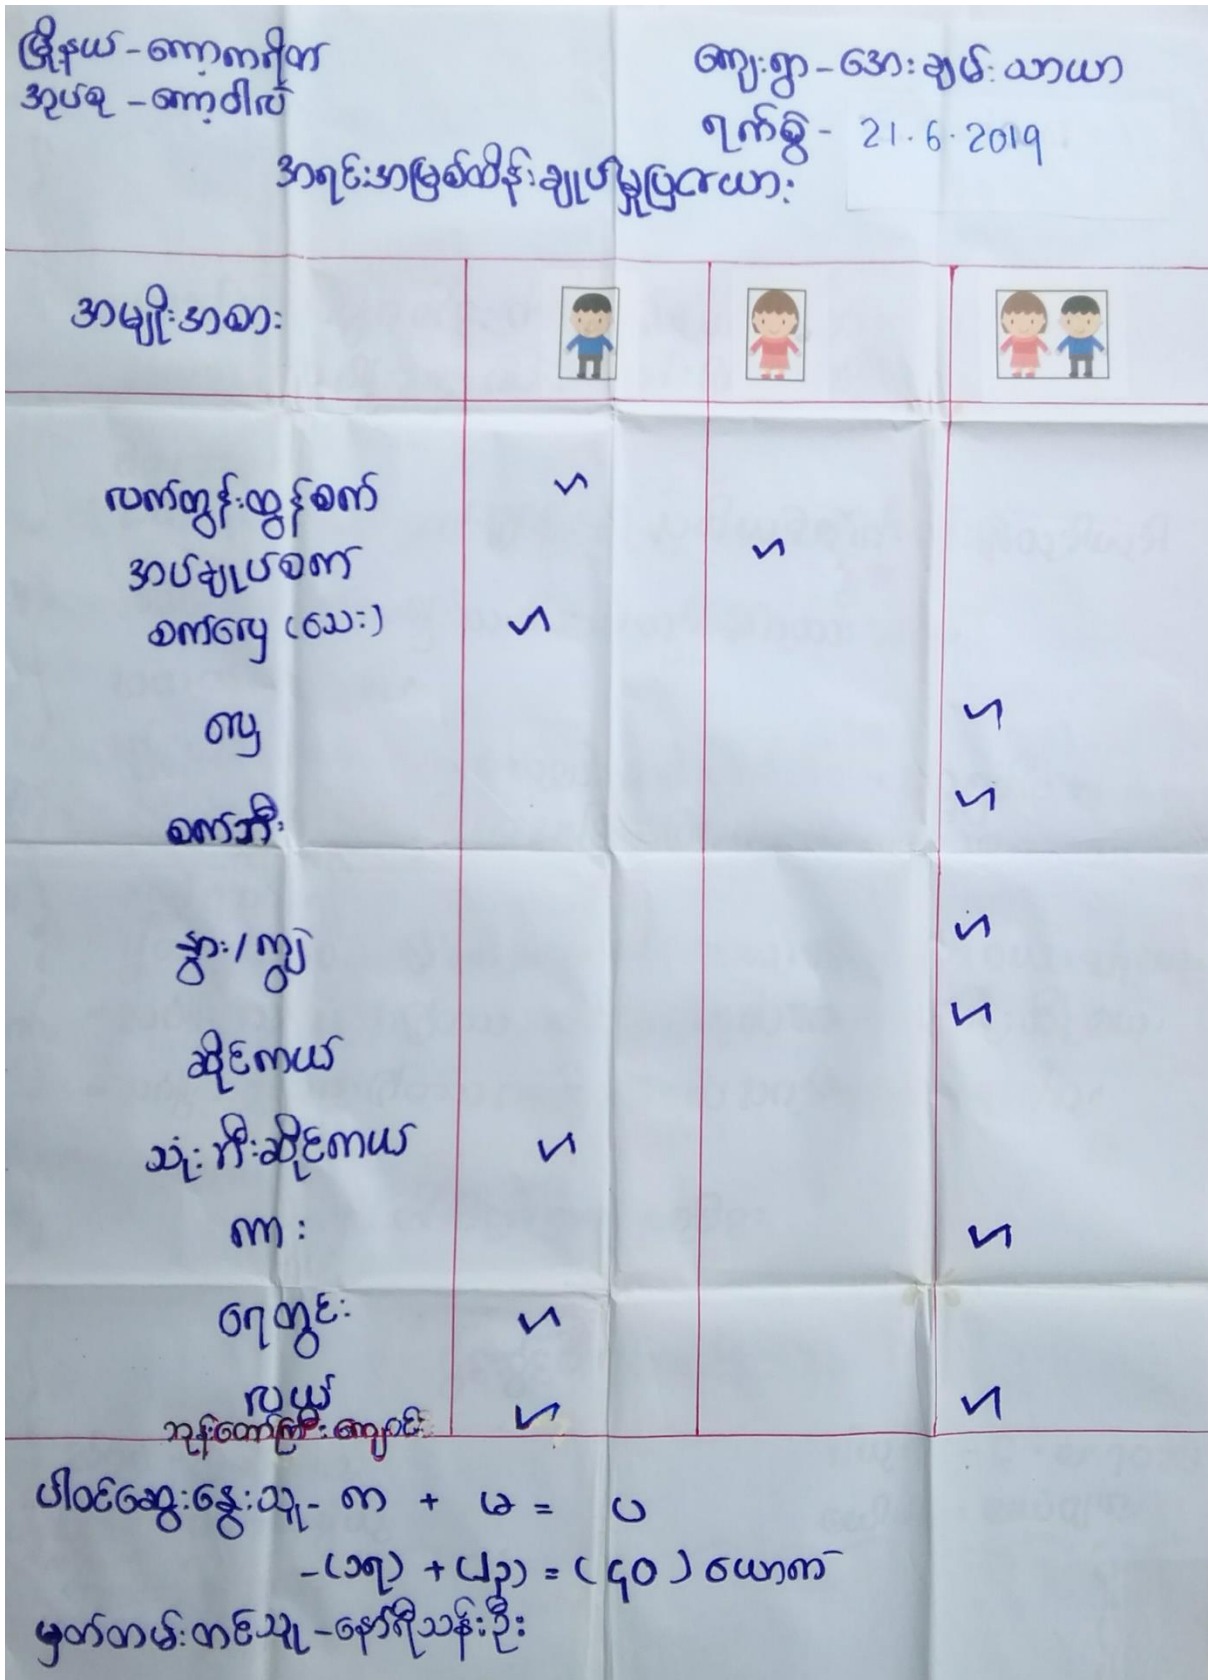 မြို့နယ် - ကော့ကရိတ်
အုပ်စု - ကော့ဝါလဲ
ကျေးရွာ - အေးချမ်းသာယာ
ရက်စွဲ - 21.6.2019
အရင်းအမြစ်ထိန်းချုပ်မှုပြဇယား
အမျိုးအစား
လက်တွန်းထွန်စက် ✓
အပ်ချုပ်စက် ✓
စက်လှေ (သေး) ✓
လှေ ✓
စက်ဘီး ✓
နွား/ကျွဲ ✓
ဆိုင်ကယ် ✓
သုံးဘီးဆိုင်ကယ် ✓
ကား ✓
ရေတွင်း ✓
လယ် ✓
ဘုန်းတော်ကြီးကျောင်း ✓
ပါဝင်ဆွေးနွေးသူ - ကာ + မ = ပ
- (၁၅) + (၂၃) = (၄၀) ယောက်
မှတ်တမ်းတင်သူ - နော်ရီသန်းဦး